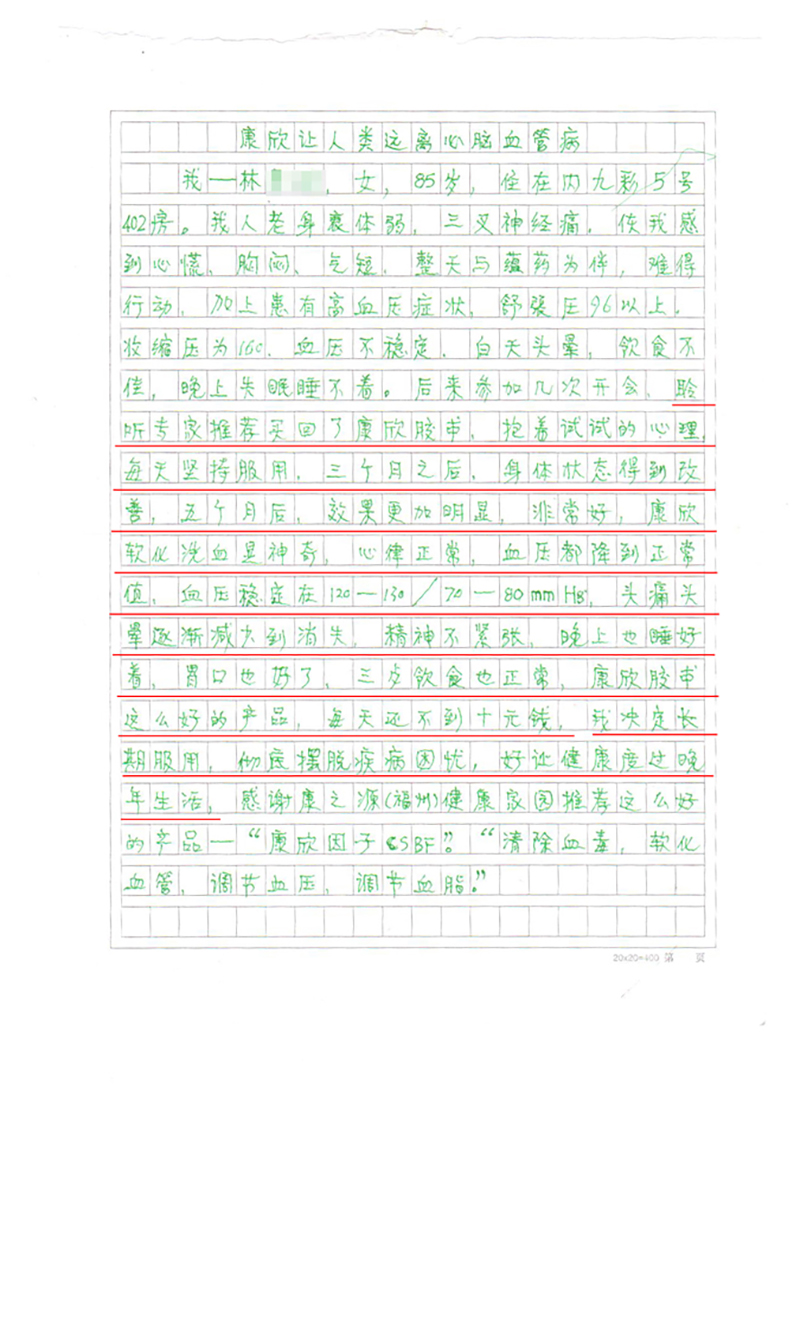 康欣让人类远离心脑血管病
我一林 ，女，85岁，住在内九彩5号
402房。我人老身衰体弱，三叉神经痛，使我感
到心慌、胸闷、气短，整天与蕴药为伴，难得
行动，加上患有高血压症状，舒张压96以上，
收缩压为160，血压不稳定，白天头晕，饮食不
佳，晚上失眠睡不着。后来参加几次开会、聆
听专家推荐买回了康欣胶束，抱着试试的心理，
每天坚持服用，三个月之后，身体状态得到改
善，五个月后，效果更加明显，非常好，康欣
软化洗血是神奇，心律正常，血压都降到正常
值，血压稳定在120—130/70—80mmHg，头痛头
晕逐渐减少到消失，精神不紧张，晚上也睡好
着，胃口也好了，三歺饮食也正常，康欣胶束
这么好的产品，每天还不到十元钱，我决定长
期服用，彻底摆脱疾病困忧，好让健康度过晚
年生活，感谢康之源(福州)健康家园推荐这么好
的产品一“康欣因子CSBF”。“清除血毒，软化
血管，调节血压，调节血脂。”
20x20=400 第 页